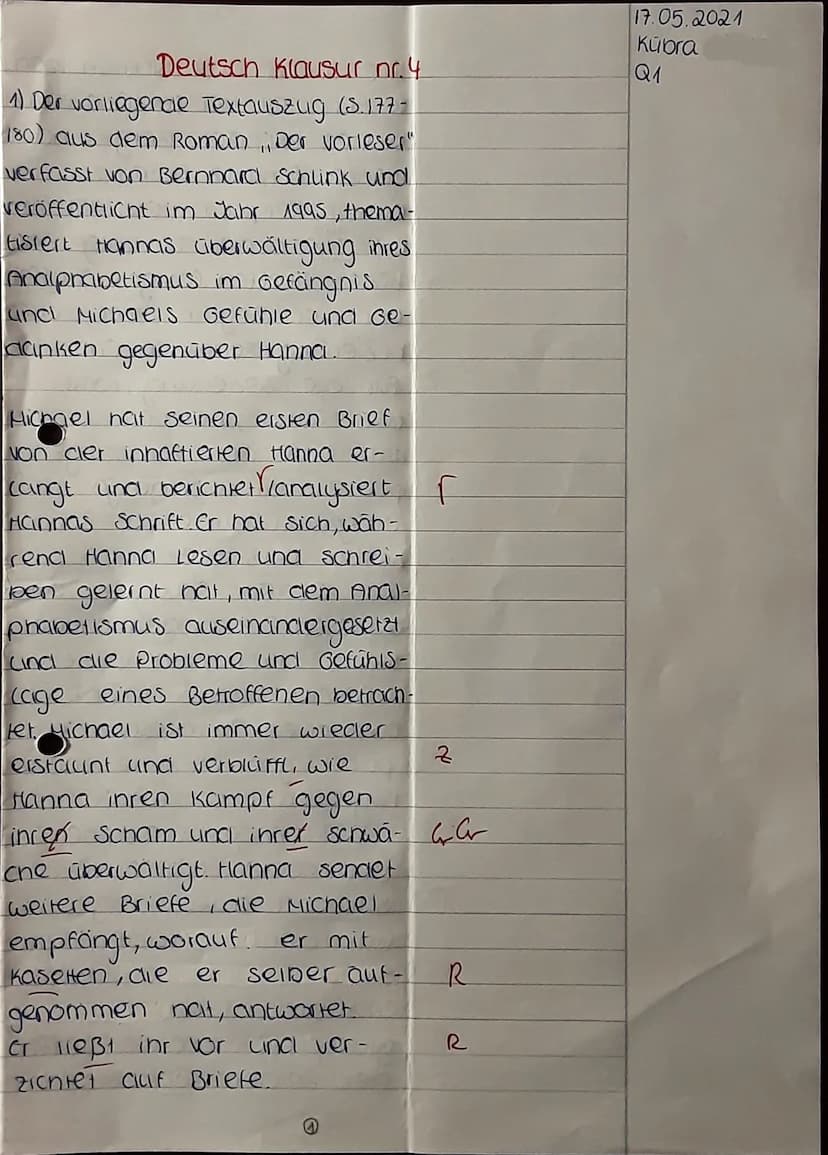 17.05.2021
Kübra
Q1
Deutsch Klausur nr. 4
1) Der vorliegende Textauszug (S.177-
180) aus dem Roman „Der Vorleser"
verfasst von Bernhard Schlink und
veröffentlicht im Jahr 1995, thema-
tisiert Hannas überwältigung ihres
Analphabetismus im Gefängnis
und Michaels Gefühle und Ge-
danken gegenüber Hanna.
Michael hat seinen ersten Brief
von der inhaftierten Hanna er-
langt und berichtet/analysiert
Hannas Schrift. Er hat sich, wäh-
rend Hanna Lesen und schrei-
ben gelernt hat, mit dem Anal-
phabetismus auseinandergesetzt
und die Probleme und Gefühls-
lage eines Betroffenen betrach-
tet. Michael ist immer wieder
erstaunt und verblüfft, wie
Z
Hanna ihren Kampf gegen
ihren Scham und ihrer schwä-
Gr Gr
che überwältigt. Hanna sendet
weitere Briefe, die Michael
empfängt, worauf er mit
Kasetten, die er selber auf-
R
genommen hat, antwortet.
Er ließt ihr vor und ver-
R
zichtet auf Briefe.
1